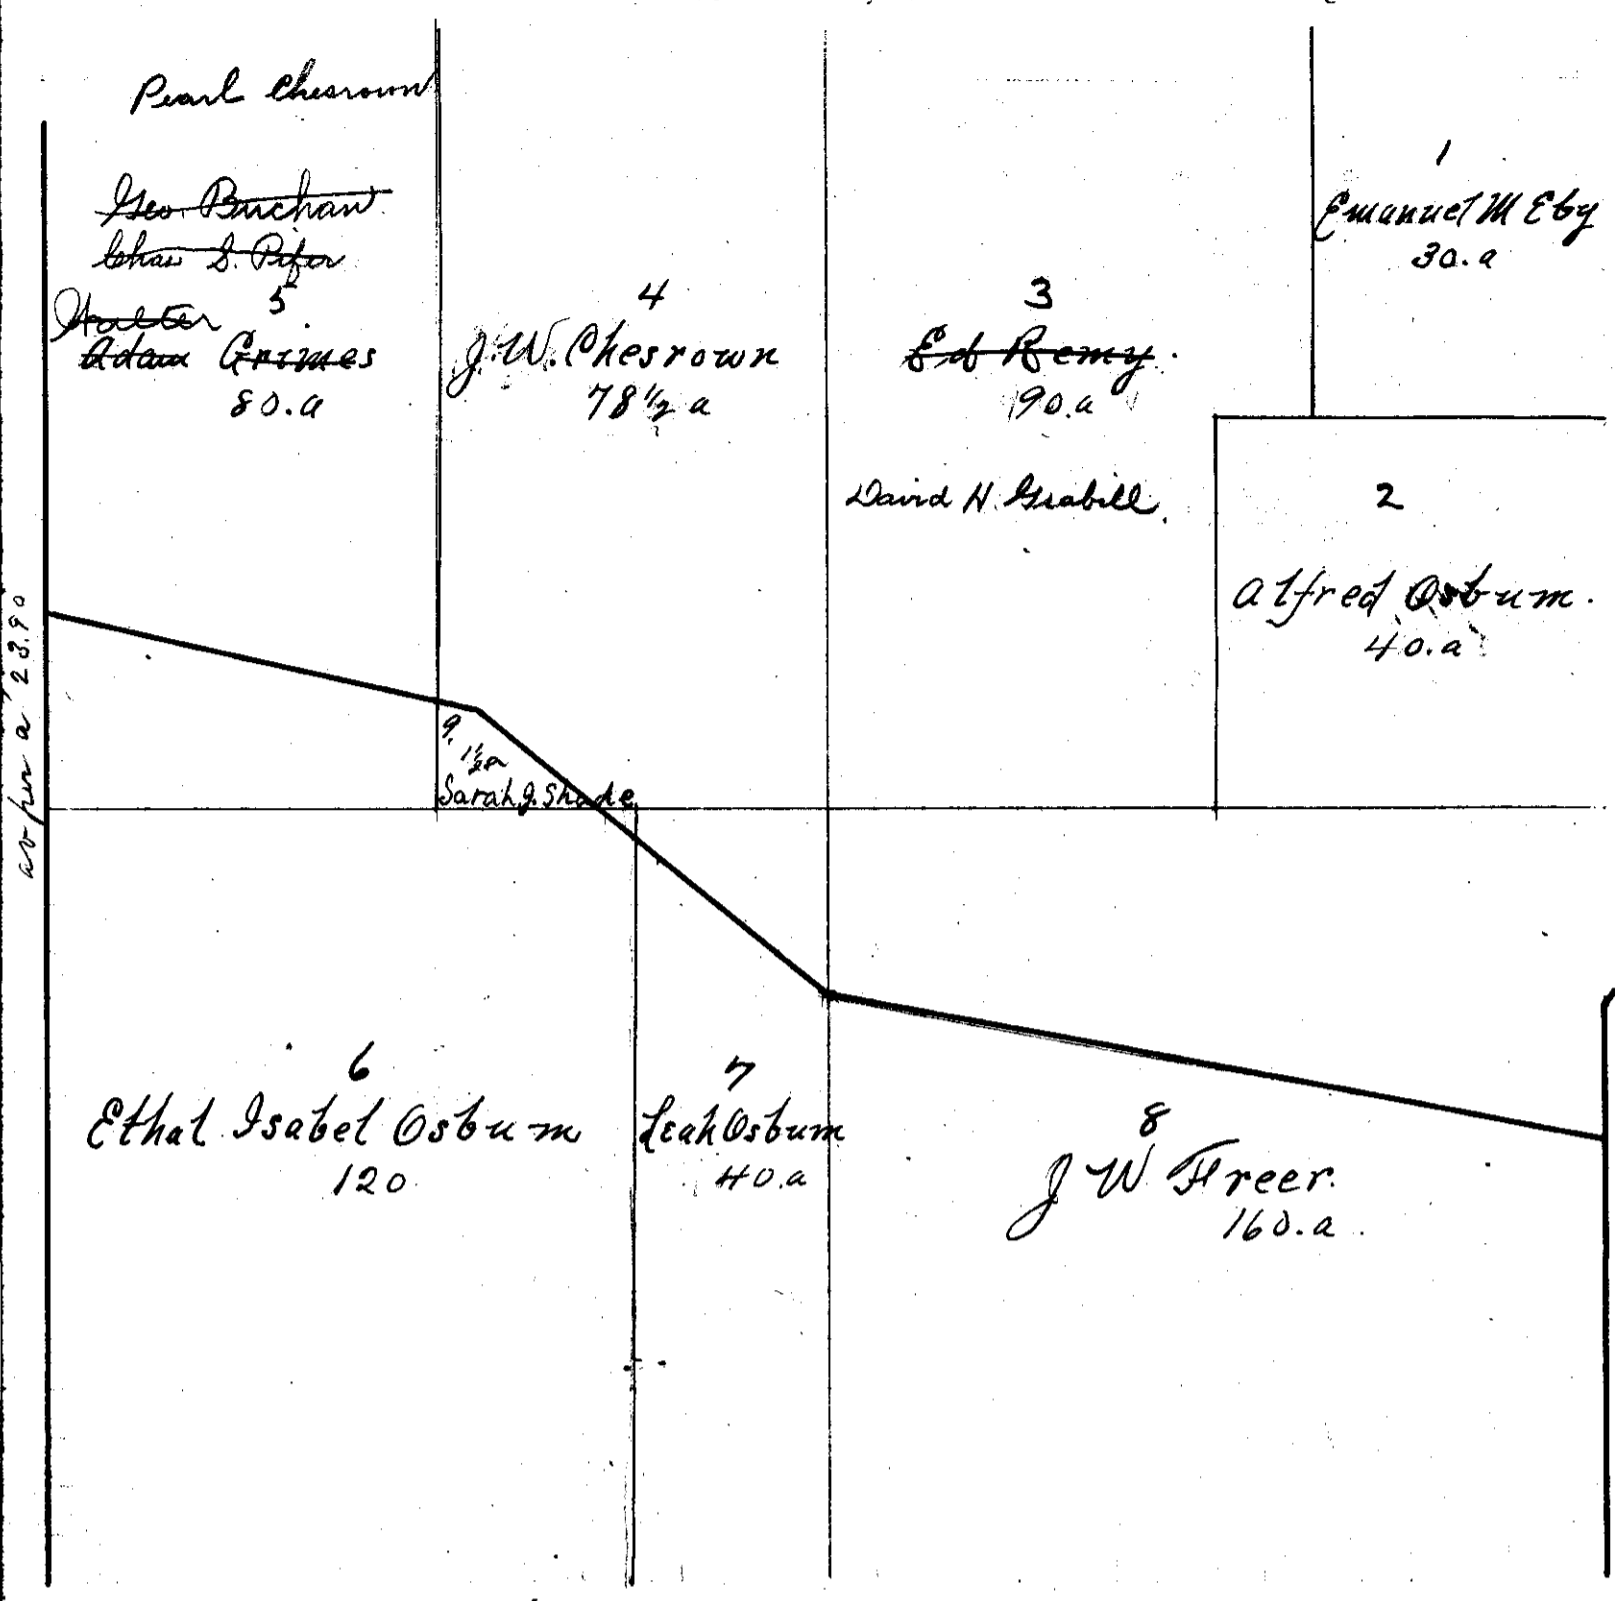 Pearl Chesrown
Geo. Burchan
Chas S. Pifer
5
Walter
Adam Grimes
80.a
4
J.W. Chesrown
78 1/2 a
3
Ed Remy.
90.a
David H. Grabill.
1
Emanuel M Eby
30.a
2
Alfred Osbum.
40.a
av per a 23.90
9.
1 1/2 a
Sarah J. Shade
6
Ethal Isabel Osbum
120
7
Leah Osbum
40.a
8
J W Freer.
160.a.